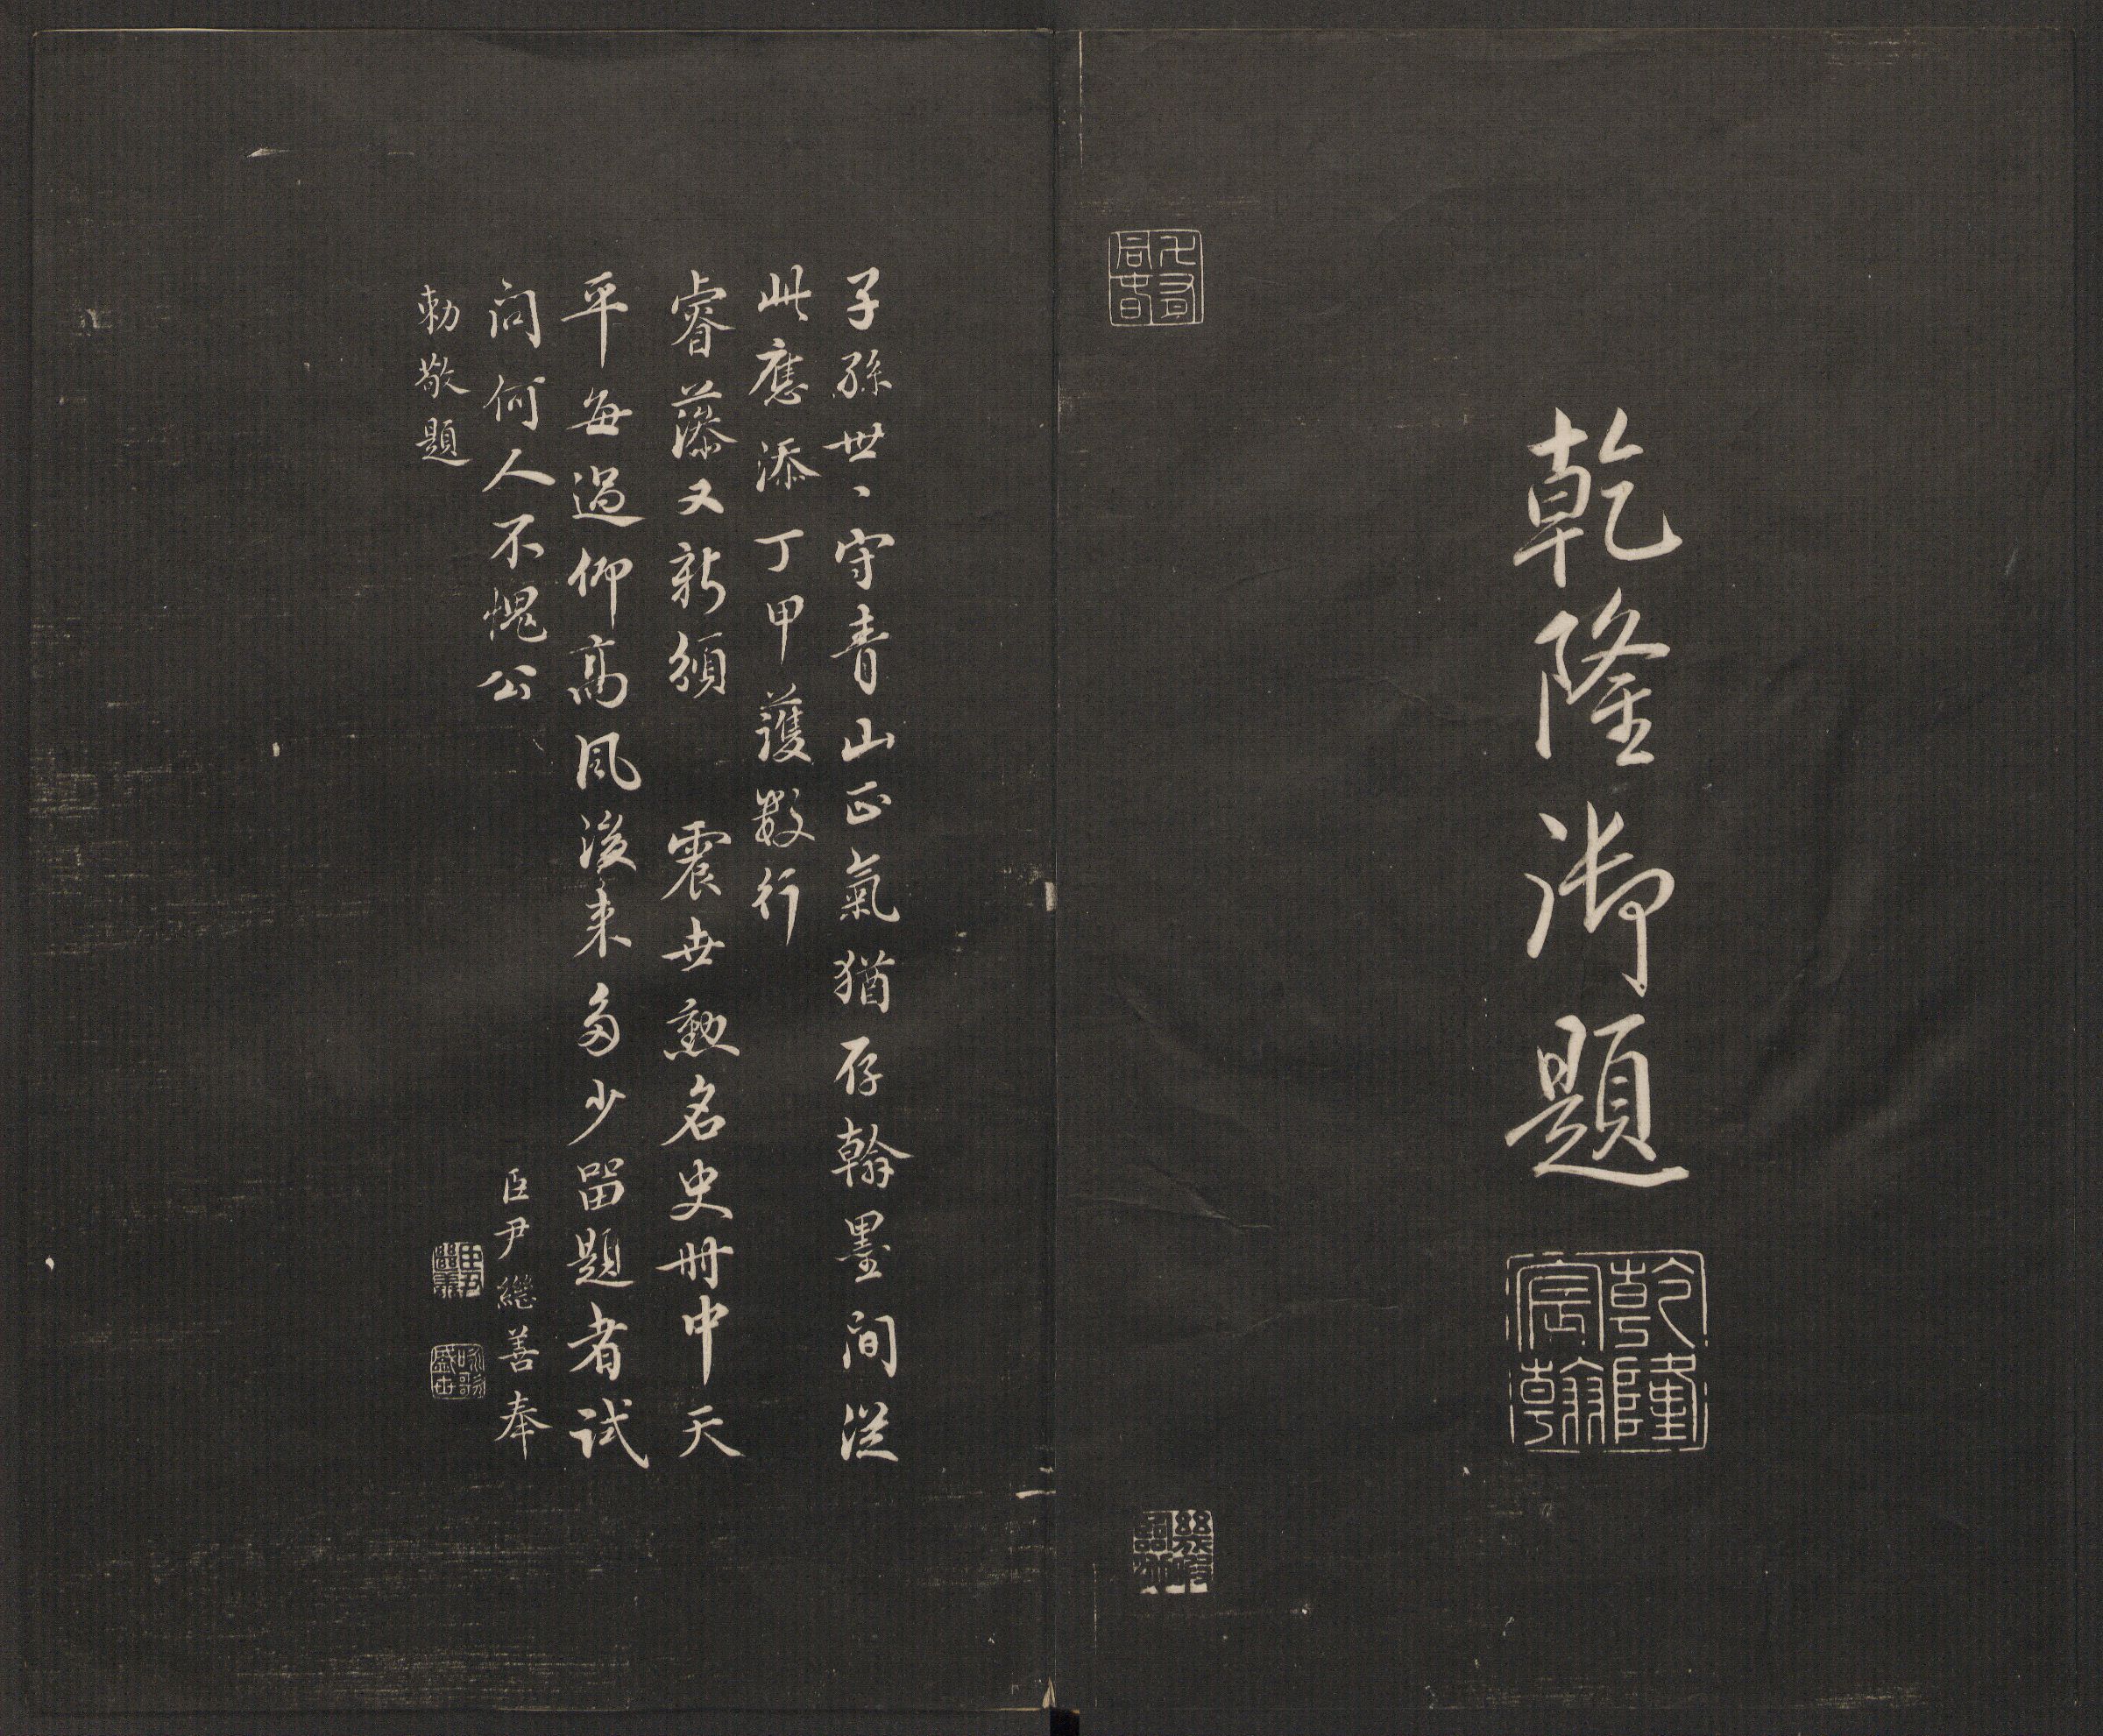 乾隆御題
乾隆宸翰
子孫世〻守青山正氣猶存翰墨間從
此應添丁甲護數行
睿藻又新頒 震世勲名史冊中天
平每過仰高風後来多少留題者試
問何人不愧公
臣尹繼善奉
勅敬題
臣尹繼善
咏歌盛世